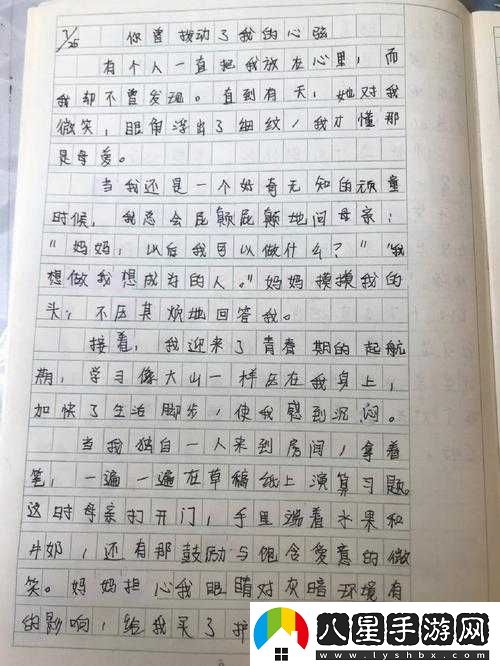 7/26
你曾拨动了我的心弦
有个人一直把我放在心里，而
我却不曾发现。直到有天，她对我
微笑，眼角浮出了细纹，我才懂那
是母爱。
当我还是一个好奇无知的顽童
时候，我总会屁颠屁颠地问母亲：
“妈妈，以后我可以做什么？”“我
想做我想成为的人。”妈妈摸摸我的
头，不厌其烦地回答我。
接着，我迎来了青春期的起航
期，学习像大山一样压在我身上，
加快了生活脚步，使我感到沉闷。
当我独自一人来到房间，拿着
笔，一遍一遍在草稿纸上演算习题。
这时母亲打开门，手里端着水果和
牛奶，还有那鼓励与饱含爱意的微
笑。妈妈担心我眼睛对灰暗环境有
的影响，给我买了护
八星手游网
www.lyshbx.com